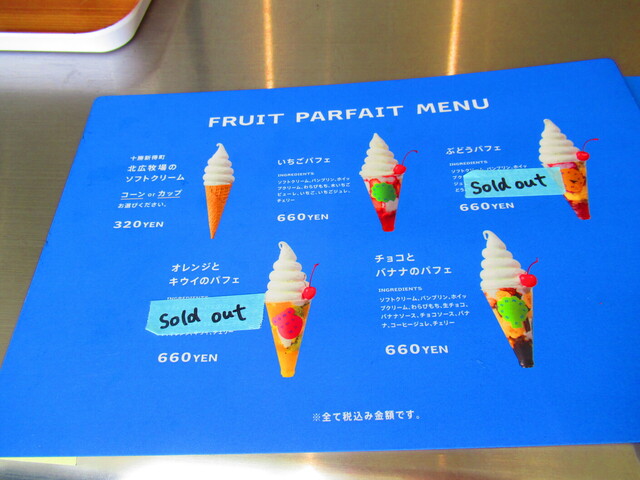 FRUIT PARFAIT MENU
十勝新得町
北広牧場の
ソフトクリーム
コーン or カップ
お選びください。
320YEN
いちごパフェ
INGREDIENTS
ソフトクリーム、パンプリン、ホイッ
プクリーム、わらびもち、氷いちご
ピューレ、いちご、いちごジュレ、
チェリー
660YEN
ぶどうパフェ
INGREDIENTS
Sold out
660YEN
オレンジと
キウイのパフェ
INGREDIENTS
Sold out
660YEN
チョコと
バナナのパフェ
INGREDIENTS
ソフトクリーム、パンプリン、ホイッ
プクリーム、わらびもち、生チョコ、
バナナソース、チョコソース、バナ
ナ、コーヒージュレ、チェリー
660YEN
※全て税込み金額です。